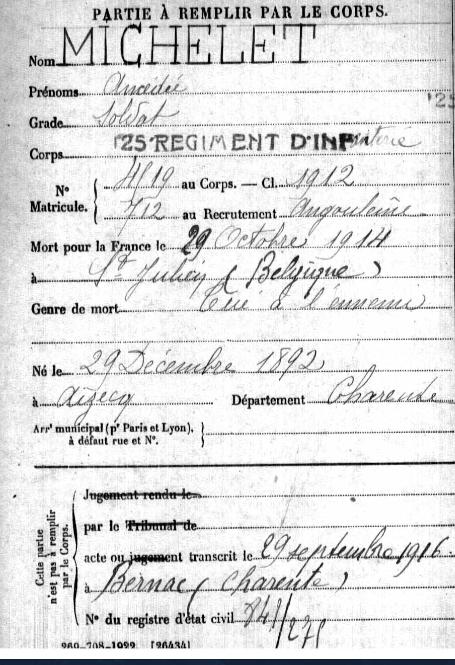 PARTIE À REMPLIR PAR LE CORPS.
Nom MICHELET
Prénoms Amédée
Grade Soldat
Corps 125 REGIMENT D'INFanterie
N° Matricule. 4819 au Corps. — Cl. 1912
712 au Recrutement Angoulême
Mort pour la France le 29 Octobre 1914
à St Julien (Belgique)
Genre de mort Tué à l'ennemi
Né le 29 Décembre 1892
à Aizecq Département Charente
Arrt municipal (pr Paris et Lyon), à défaut rue et N°.
Cette partie n'est pas à remplir par le Corps.
Jugement rendu le
par le Tribunal de
acte ou jugement transcrit le 29 septembre 1916
à Bernac (Charente)
N° du registre d'état civil
260-708-1922 [26434]